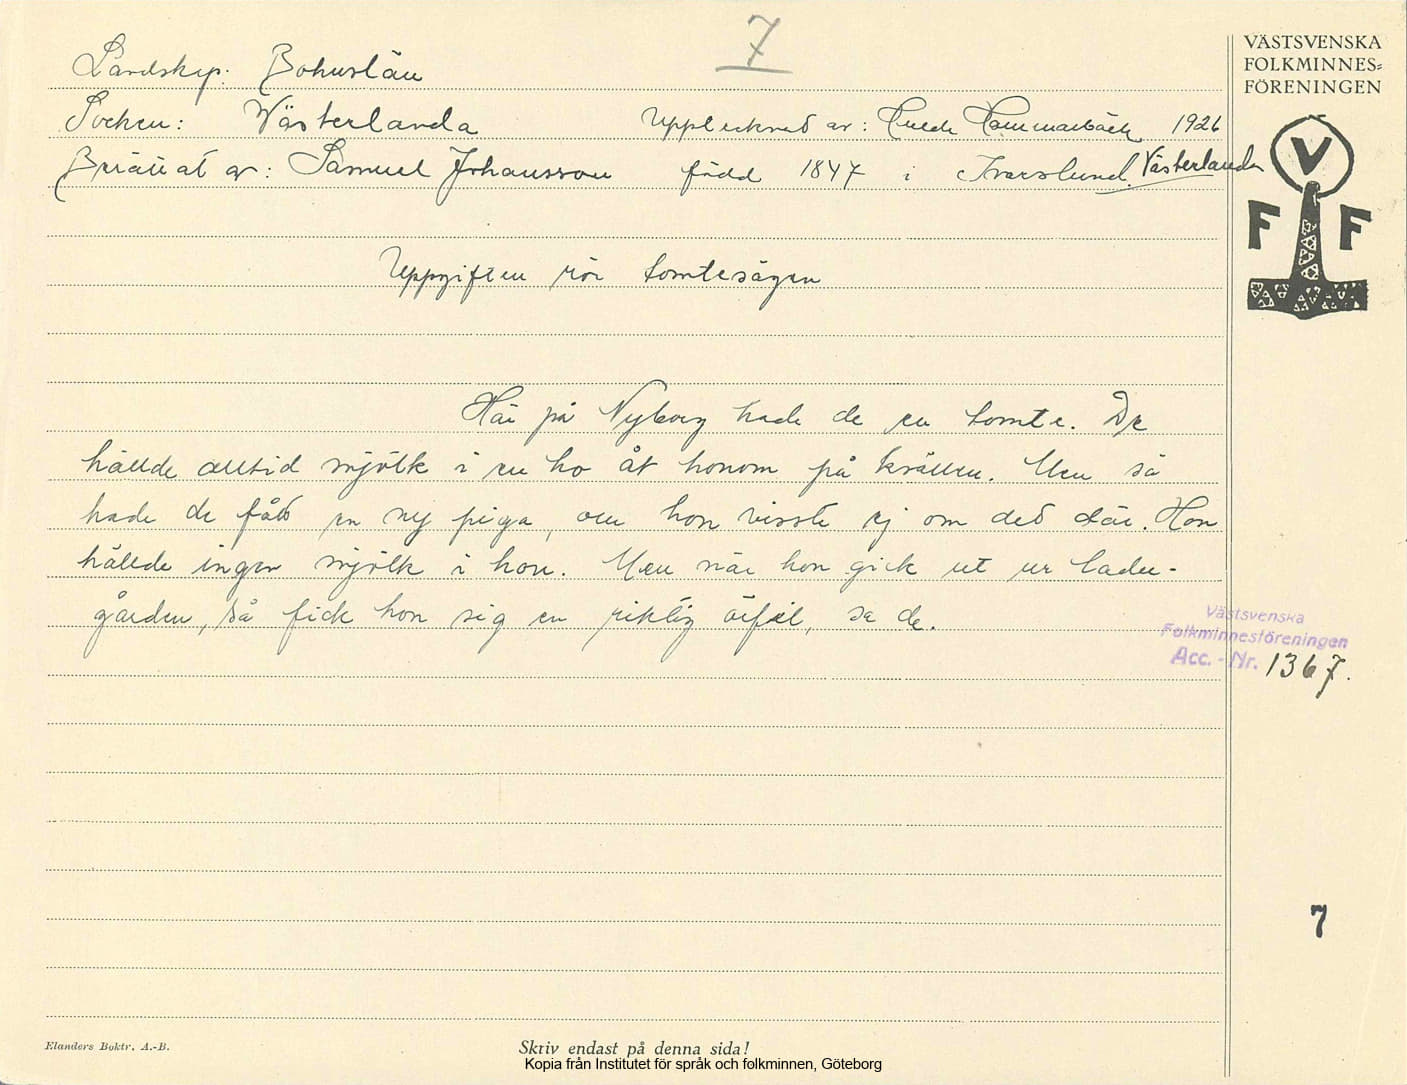 7
VÄSTSVENSKA
FOLKMINNES=
FÖRENINGEN
Landskap: Bohuslän
Socken: Västerlanda Upptecknad av: Hulda Hammarbäck 1926
Berättat av: Samuel Johansson född 1847 i Tvarslund. Västerlanda
V
F F
Uppgiften rör tomtesägen
Här på Nyborg hade de en tomte. De
hällde alltid mjölk i en ho åt honom på kvällen. Men så
hade de fått en ny piga, och hon visste ej om det där. Hon
hällde ingen mjölk i hon. Men när hon gick ut ur ladu-
gården, så fick hon sig en riktig örfil, sa de.
Västsvenska
Folkminnesföreningen
Acc.-Nr. 1367.
7
Elanders Boktr. A.-B.
Skriv endast på denna sida!
Kopia från Institutet för språk och folkminnen, Göteborg